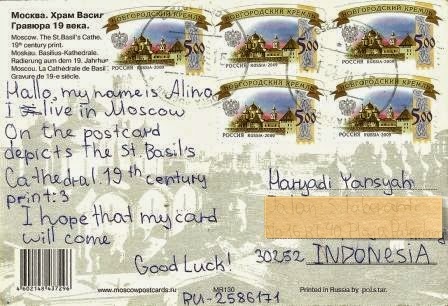 Москва. Храм Васил
Гравюра 19 века.
Moscow. The St.Basil's Cathe.
19th century print.
Moskau. Basilius-Kathedrale.
Radierung aum dem 19. Jahrhun
Moscou. La Cathédrale de Basil
Gravure de 19-e siècle.
НОВГОРОДСКИЙ КРЕМЛЬ
5,00
РОССИЯ RUSSIA·2009
НОВГОРОДСКИЙ КРЕМЛЬ
5,00
РОССИЯ RUSSIA·2009
НОВГОРОДСКИЙ КРЕМЛЬ
5,00
РОССИЯ RUSSIA·2009
НОВГОРОДСКИЙ КРЕМЛЬ
5,00
РОССИЯ RUSSIA·2009
НОВГОРОДСКИЙ КРЕМЛЬ
5,00
РОССИЯ RUSSIA·2009
Hallo, my name is Alina
I live in Moscow
On the postcard
depicts The St. Basil's
Cathedral 19th century
print:3
I hope that my card
will come
Good Luck!
Haryadi Yansyah
30252 INDONESIA
4602148437296
www.moscowpostcards.ru
MR130
Printed in Russia by pol.star.
RU-2586171